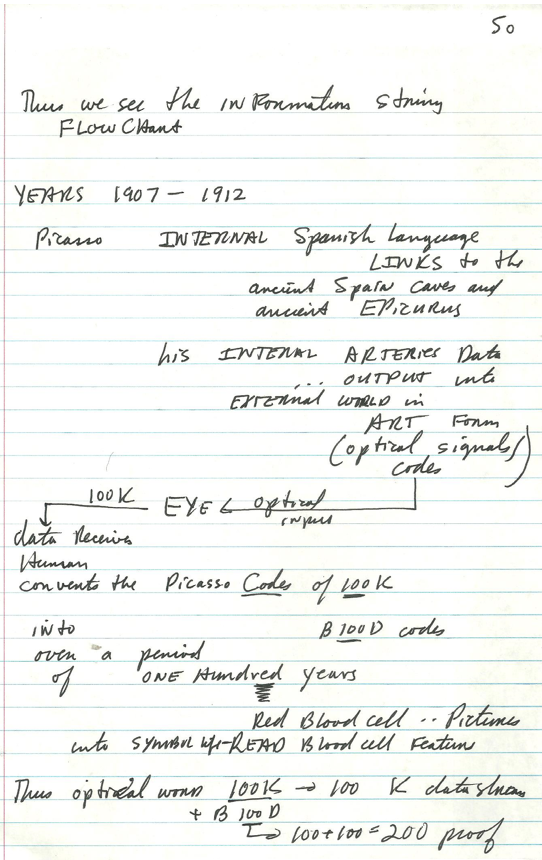 50
Thus we see the information string
FLOW CHart
YEARS 1907 - 1912
Picasso INTERNAL Spanish Language
LINKS to the
ancient Spain caves and
ancient EPICURUS
his INTENAL ARTERIES Data
... OUTPUT into
EXTERNAL WORLD in
ART Form
(optical signals/
codes)
100K EYE ← optical
input
data Receives
Human
converts the Picasso Codes of 100K
into B100D codes
over a period
of ONE Hundred years
Red Blood cell .. Pictures
into SYMBOL READ Blood cell Feature
Thus optical word 100K → 100 K data stream
+ B 100D
→ 100+100=200 proof